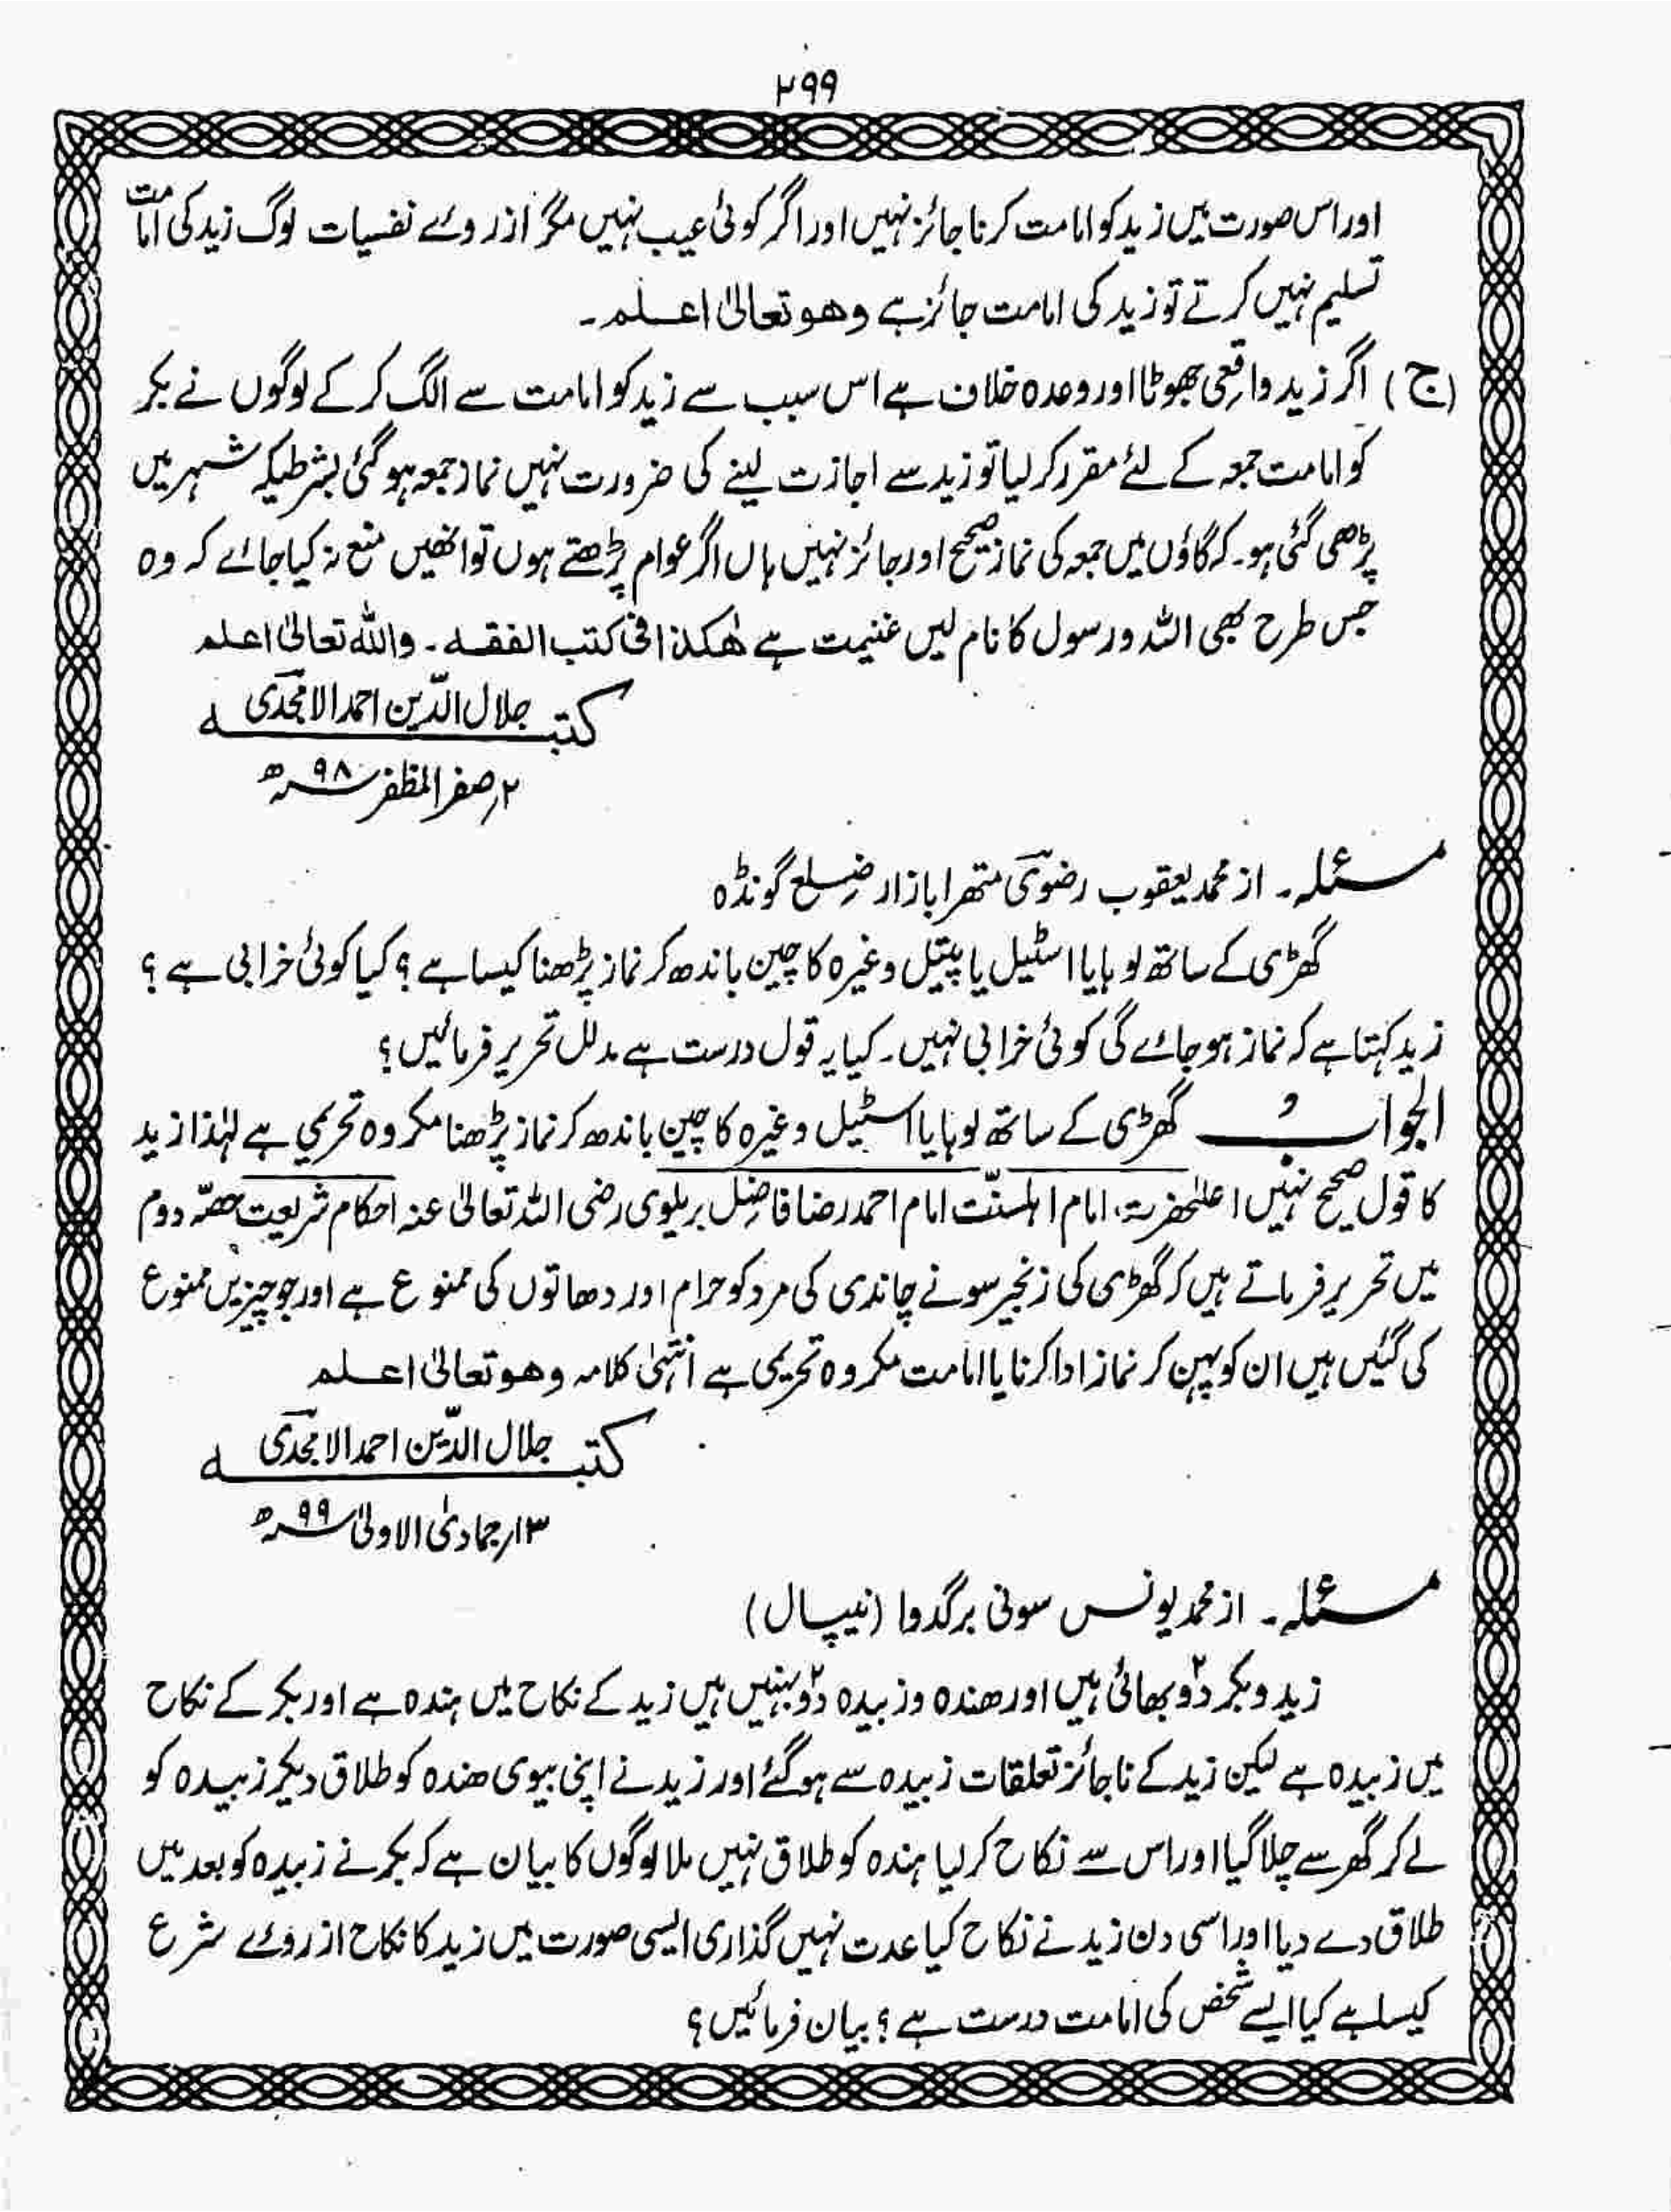 ۲۹۹
اور اس صورت میں زید کو امامت کرنا جائز نہیں اور اگر کوئی عیب نہیں مگر از روئے نفسیات لوگ زید کی امامت
تسلیم نہیں کرتے تو زید کی امامت جائز ہے وھو تعالیٰ اعلم۔
(ج) اگر زید واقعی جھوٹا اور وعدہ خلاف ہے اس سبب سے زید کو امامت سے الگ کر کے لوگوں نے بکر
کو امامت جمعہ کے لئے مقرر کر لیا تو زید سے اجازت لینے کی ضرورت نہیں نماز جمعہ ہو گئی بشرطیکہ شہر میں
پڑھی گئی ہو۔ کہ گاؤں میں جمعہ کی نماز صحیح اور جائز نہیں ہاں اگر عوام پڑھتے ہوں تو انھیں منع نہ کیا جائے کہ وہ
جس طرح بھی اللہ و رسول کا نام لیں غنیمت ہے ھٰکذا فی کتب الفقہ۔ واللہ تعالیٰ اعلم
کتبہ جلال الدّین احمد الامجدی
۲؍ صفر المظفر ۹۸ھ
مسئلہ۔ از محمد یعقوب رضوی متھرا بازار ضلع گونڈہ
گھڑی کے ساتھ لوہا یا اسٹیل یا پیتل وغیرہ کا چین باندھ کر نماز پڑھنا کیسا ہے؟ کیا کوئی خرابی ہے؟
زید کہتا ہے کہ نماز ہو جائے گی کوئی خرابی نہیں۔ کیا یہ قول درست ہے مدلل تحریر فرمائیں؟
الجوابُ گھڑی کے ساتھ لوہا یا اسٹیل وغیرہ کا چین باندھ کر نماز پڑھنا مکروہ تحریمی ہے لہٰذا زید
کا قول صحیح نہیں اعلیٰحضرت، امام اہلسنّت امام احمد رضا فاضل بریلوی رضی اللہ تعالیٰ عنہ احکام شریعت حصّہ دوم
میں تحریر فرماتے ہیں کہ گھڑی کی زنجیر سونے چاندی کی مرد کو حرام اور دھاتوں کی ممنوع ہے اور جو چیزیں ممنوع
کی گئیں ہیں ان کو پہن کر نماز ادا کرنا یا امامت مکروہ تحریمی ہے انتہیٰ کلامہ وھو تعالیٰ اعلم
کتبہ جلال الدّین احمد الامجدی
۱۳؍ جمادی الاولیٰ ۹۹ھ
مسئلہ۔ از محمد یونس سونی برگدوا (نیپال)
زید و بکر دو۲ بھائی ہیں اور ھندہ و زبیدہ دو۲ بہنیں ہیں زید کے نکاح میں ہندہ ہے اور بکر کے نکاح
میں زبیدہ ہے لیکن زید کے ناجائز تعلقات زبیدہ سے ہو گئے اور زید نے اپنی بیوی ھندہ کو طلاق دیکر زبیدہ کو
لے کر گھر سے چلا گیا اور اس سے نکاح کر لیا ہندہ کو طلاق نہیں ملا لوگوں کا بیان ہے کہ بکر نے زبیدہ کو بعد میں
طلاق دے دیا اور اسی دن زید نے نکاح کیا عدت نہیں گذاری ایسی صورت میں زید کا نکاح از روئے شرع
کیسا ہے کیا ایسے شخص کی امامت درست ہے؟ بیان فرمائیں؟